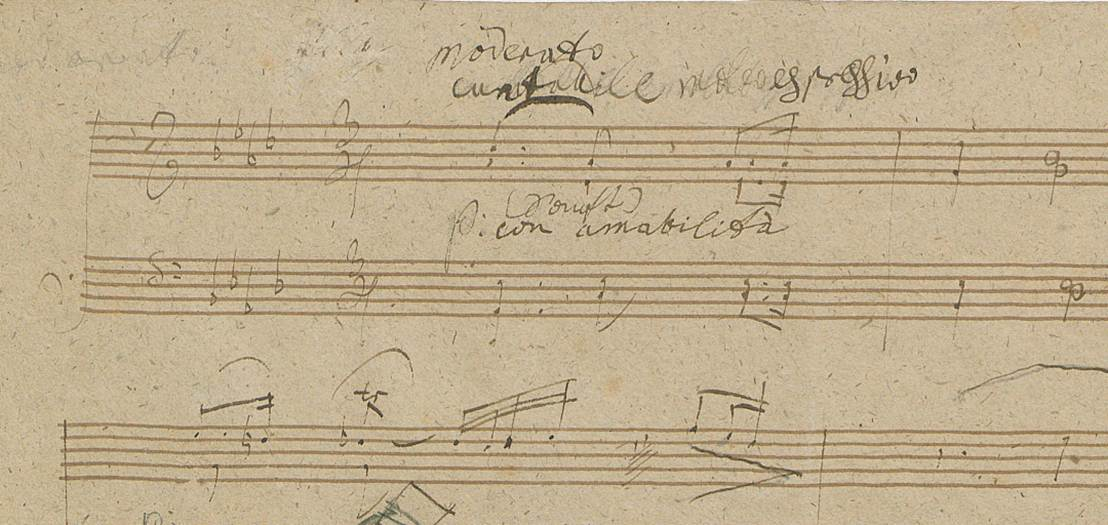 moderato
cantabile molto espressivo
(Sanft)
p: con amabilità
tr